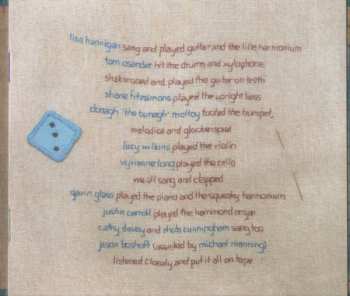 lisa hannigan sang and played guitar and the little harmonium
tom osander hit the drums and xylophone
shook seed and played the guitar on teeth
shane fitzsimons played the upright bass
donagh 'the bonagh' molloy tooted the trumpet,
melodica and glockenspiel
lucy wilkins played the violin
vyvienne long played the cello
we all sang and clapped
gavin glass played the piano and the squeaky harmonium
justin carroll played the hammond organ
cathy davey and rhob cunningham sang too
jason boshoff (assisted by michael manning)
listened closely and put it all on tape